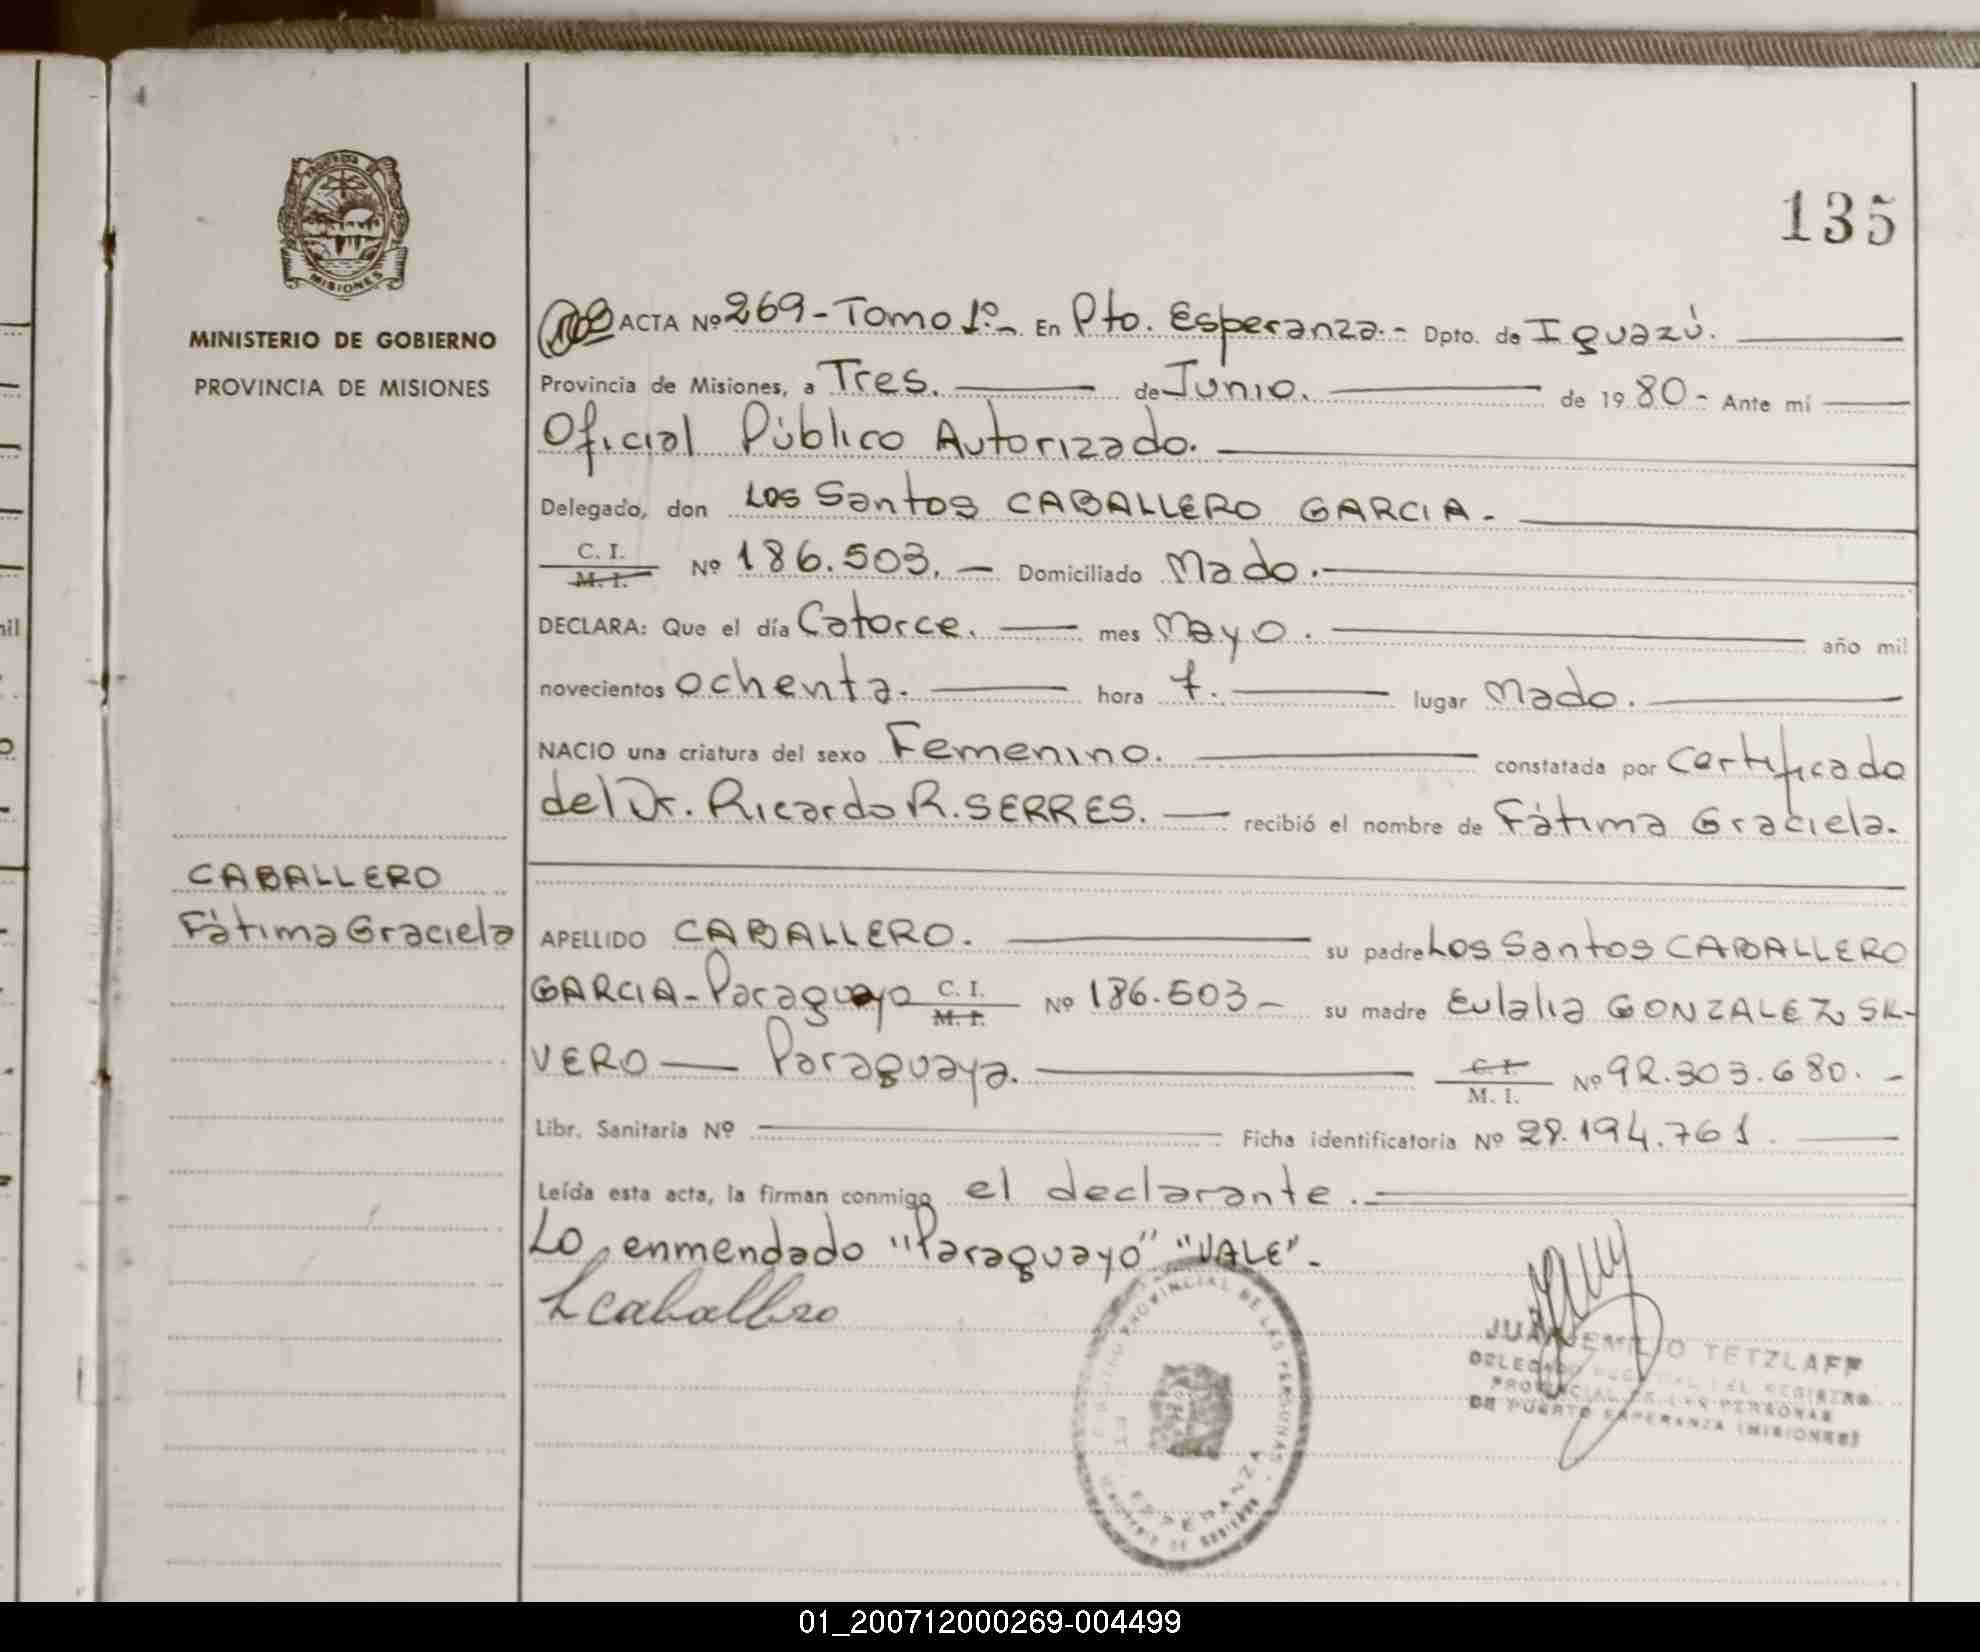 135
MISIONES
MINISTERIO DE GOBIERNO
PROVINCIA DE MISIONES
ACTA Nº 269 - Tomo 1º.- En Pto. Esperanza.- Dpto. de Iguazú.
Provincia de Misiones, a Tres. de Junio. de 1980- Ante mí
Oficial Público Autorizado.
Delegado, don Los Santos CABALLERO GARCIA.
C. I.
M. I. Nº 186.503. — Domiciliado Mado.
DECLARA: Que el día Catorce. mes Mayo. año mil
novecientos ochenta. hora 7. lugar Mado.
NACIO una criatura del sexo Femenino. constatada por Certificado
del Dr. Ricardo R. SERRES. recibió el nombre de Fátima Graciela.
CABALLERO
Fátima Graciela
APELLIDO CABALLERO. su padre Los Santos CABALLERO
GARCIA - Paraguayo C. I.
M. I. Nº 186.503 - su madre Eulalia GONZALEZ
VERO — Paraguaya. C. I.
M. I. Nº 92.303.680. -
Libr. Sanitaria Nº Ficha identificatoria Nº 28.194.761.
Leída esta acta, la firman conmigo el declarante.
Lo enmendado "Paraguayo" "VALE".
L caballero
PROVINCIAL DE LAS PERSONAS
ESPERANZA
JUAN EMILIO TETZLAFF
DELEGADO DEL REGISTRO
PROVINCIAL DE LAS PERSONAS
DE PUERTO ESPERANZA (MISIONES)
01_200712000269-004499